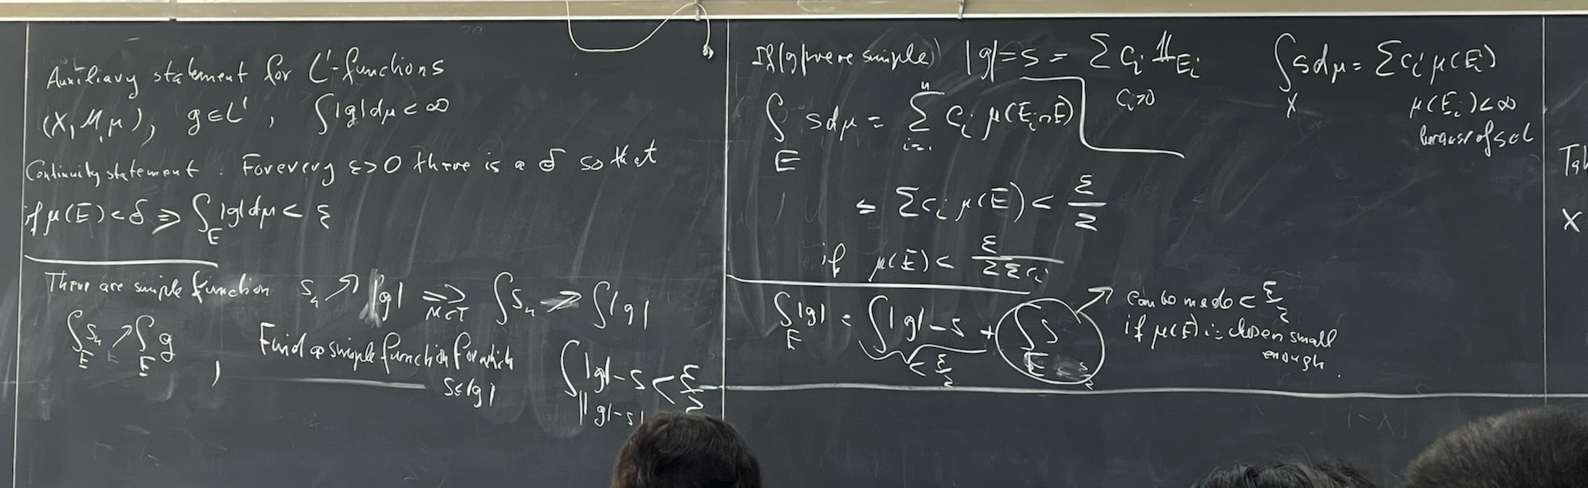 Auxiliary statement for L¹-functions
(X, M, μ), g∈L¹, ∫|g|dμ < ∞
Continuity statement. For every ε>0 there is a δ so that
if μ(E) < δ ⇒ ∫_E |g|dμ < ε
There are simple function s_n ↗ |g| ⇒ MCT ∫s_n ↗ ∫|g|
∫_E s_n ↗ ∫_E g, Find a simple function for which s≤|g| ∫|g|-s < ε/2
||g|-s|
If |g| were simple) |g|=s = Σ c_i 𝟙_{E_i}
c_i>0
∫_X s dμ = Σ c_i μ(E_i)
μ(E_i)<∞
because of s∈L¹
∫_E s dμ = Σ_{i=1}^n c_i μ(E_i∩E)
≤ Σ c_i μ(E) < ε/2
if μ(E) < ε/(2Σc_i)
∫_E |g| = ∫|g|-s + ∫_E s
< ε/2
can be made < ε/2
if μ(E) is chosen small
enough.
X